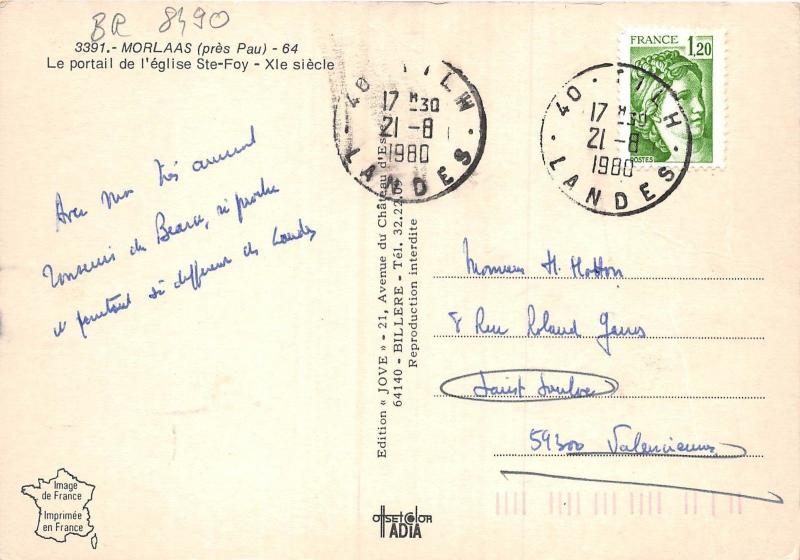 BR 8490
3391.- MORLAAS (près Pau) - 64
Le portail de l'église Ste-Foy - XIe siècle
FRANCE
1,20
POSTES
40 · TILH
17 H30
21-8
1980
LANDES
40 · TILH
17 H30
21-8
1980
· LANDES ·
Avec mon très amical
souvenir du Béarn, si proche
et pourtant si différent des Landes
Monsieur H. Hotton
8 Rue Roland Garros
Saint Saulve
59300 Valenciennes
Edition « JOVE » - 21, Avenue du Château d'Este
64140 - BILLERE - Tél. 32.22.09
Reproduction interdite
Image
de France
Imprimée
en France
offset color
ADIA